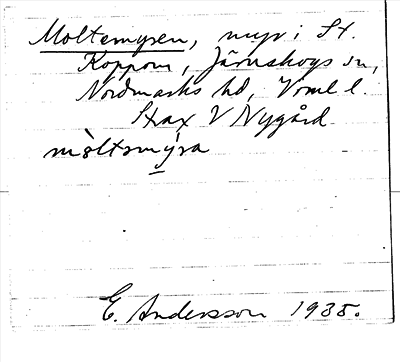 Moltemyren, myr i St.
Koppom, Järnskogs sn,
Nordmarks hd, Vrml l.
Strax V Nygård
mòltmýra
E. Andersson 1935.